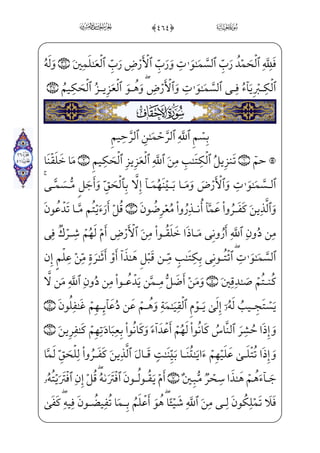 ﴿٤٦٤﴾
فَلِلَّهِ ٱلْحَمْدُ رَبِّ ٱلسَّمَـٰوَٰتِ وَرَبِّ ٱلْأَرْضِ رَبِّ ٱلْعَـٰلَمِينَ وَلَهُ
ٱلْكِبْرِيَآءُ فِى ٱلسَّمَـٰوَٰتِ وَٱلْأَرْضِ ۖ وَهُوَ ٱلْعَزِيزُ ٱلْحَكِيمُ
سُورَةُ الأَحْقَافِ
بِسْمِ ٱللَّهِ ٱلرَّحْمَـٰنِ ٱلرَّحِيمِ
حمٓ تَنزِيلُ ٱلْكِتَـٰبِ مِنَ ٱللَّهِ ٱلْعَزِيزِ ٱلْحَكِيمِ مَا خَلَقْنَا
ٱلسَّمَـٰوَٰتِ وَٱلْأَرْضَ وَمَا بَيْنَهُمَآ إِلَّا بِٱلْحَقِّ وَأَجَلٍ مُّسَمًّى ۚ
وَٱلَّذِينَ كَفَرُوا۟ عَمَّآ أُنذِرُوا۟ مُعْرِضُونَ قُلْ أَرَءَيْتُم مَّا تَدْعُونَ
مِن دُونِ ٱللَّهِ أَرُونِى مَاذَا خَلَقُوا۟ مِنَ ٱلْأَرْضِ أَمْ لَهُمْ شِرْكٌ فِى
ٱلسَّمَـٰوَٰتِ ۖ ٱئْتُونِى بِكِتَـٰبٍ مِّن قَبْلِ هَـٰذَآ أَوْ أَثَـٰرَةٍ مِّنْ عِلْمٍ إِن
كُنتُمْ صَـٰدِقِينَ وَمَنْ أَضَلُّ مِمَّن يَدْعُوا۟ مِن دُونِ ٱللَّهِ مَن لَّا
يَسْتَجِيبُ لَهُۥٓ إِلَىٰ يَوْمِ ٱلْقِيَـٰمَةِ وَهُمْ عَن دُعَآئِهِمْ غَـٰفِلُونَ
وَإِذَا حُشِرَ ٱلنَّاسُ كَانُوا۟ لَهُمْ أَعْدَآءً وَكَانُوا۟ بِعِبَادَتِهِمْ كَـٰفِرِينَ
وَإِذَا تُتْلَىٰ عَلَيْهِمْ ءَايَـٰتُنَا بَيِّنَـٰتٍ قَالَ ٱلَّذِينَ كَفَرُوا۟ لِلْحَقِّ لَمَّا
جَآءَهُمْ هَـٰذَا سِحْرٌ مُّبِينٌ أَمْ يَقُولُونَ ٱفْتَرَىٰهُ ۖ قُلْ إِنِ ٱفْتَرَيْتُهُۥ
فَلَا تَمْلِكُونَ لِى مِنَ ٱللَّهِ شَيْـًٔا ۖ هُوَ أَعْلَمُ بِمَا تُفِيضُونَ فِيهِ ۖ كَفَىٰ